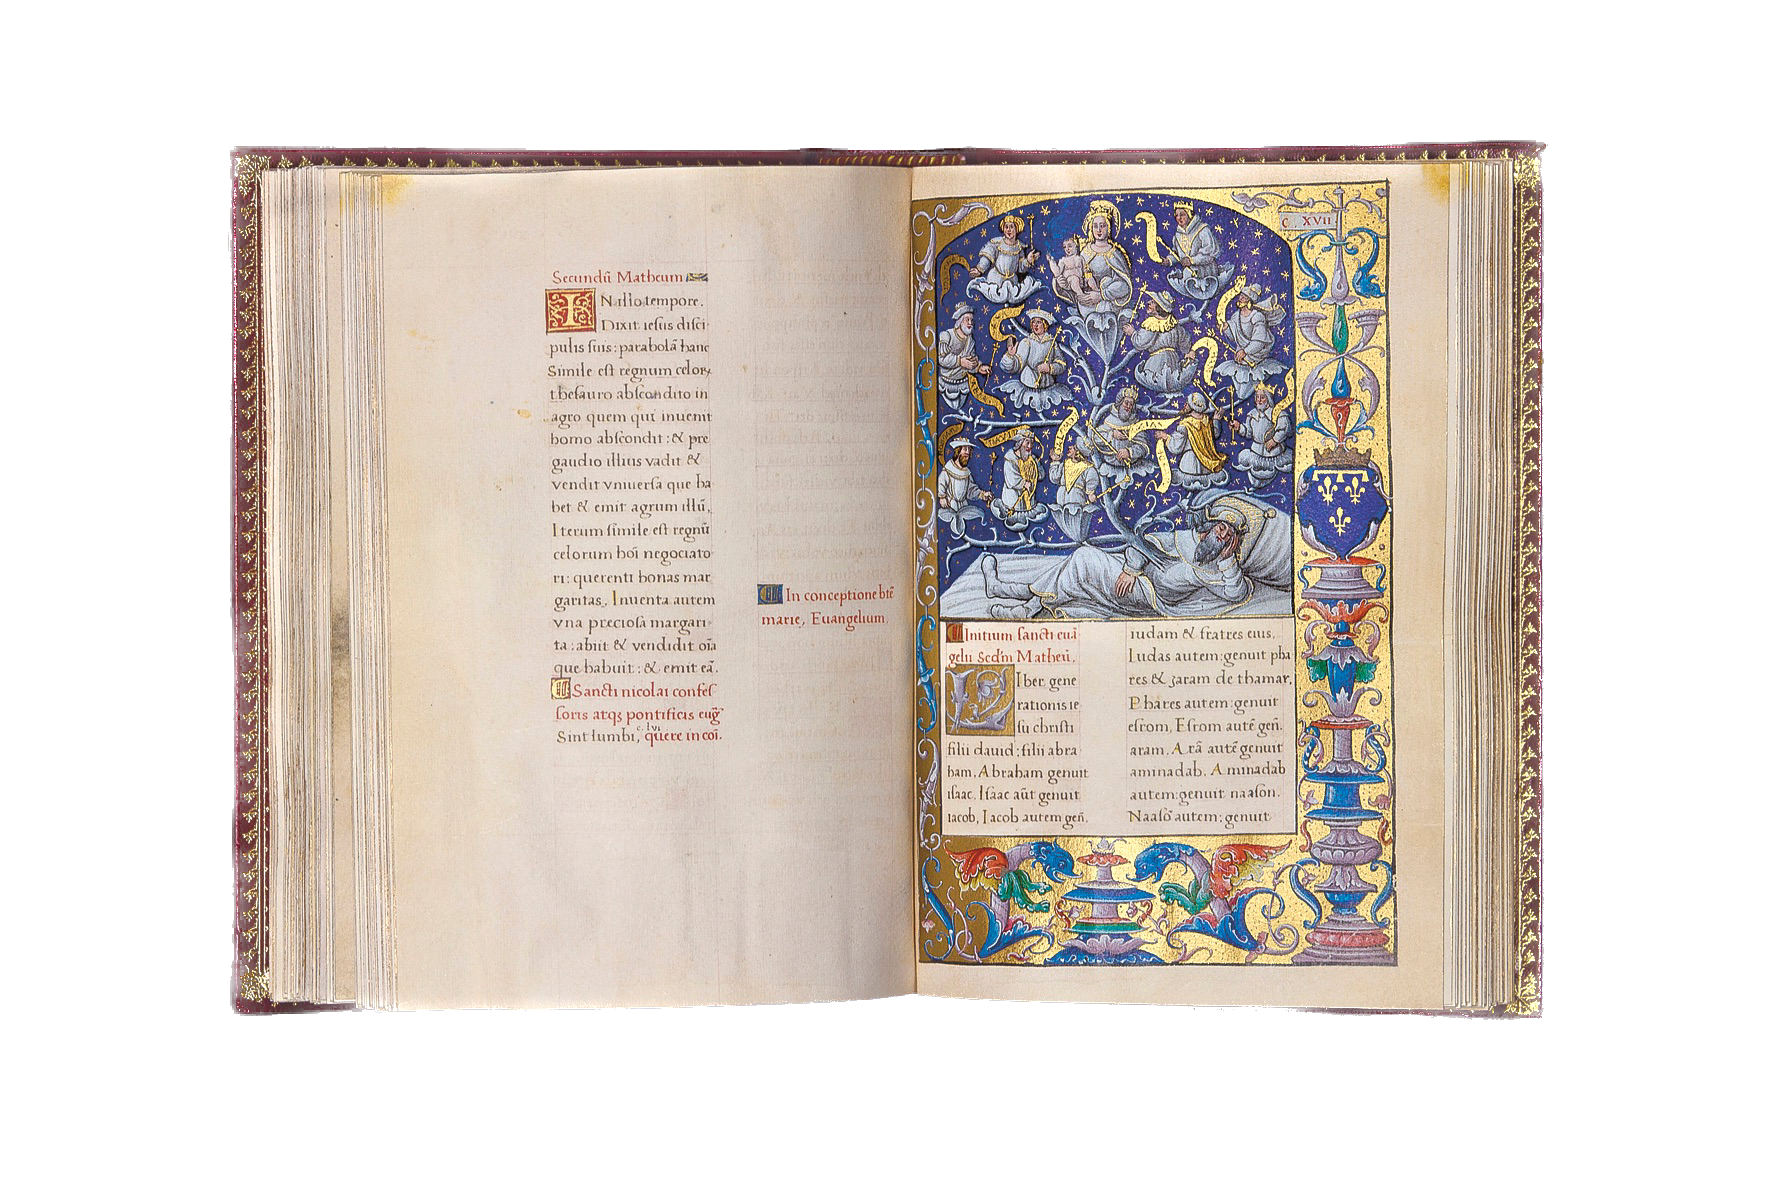 Secundū Matheum
IN illo tempore.
Dixit iesus disci-
pulis suis: parabolā hanc
Simile est regnum celoꝝ
thesauro abscondito in
agro quem qui inuenit
homo abscondit: & pre
gaudio illius vadit &
vendit vniuersa que ha
bet & emit agrum illū,
Iterum simile est regnū
celorum hoī negociato-
ri: querenti bonas mar
garitas, Inuenta autem
vna preciosa margari-
ta: abiit & vendidit oīa
que habuit: & emit eā.
Sancti nicolai confes-
soris atqꝫ pontificis euḡ
c. lvi
Sint lumbi, quere in coī.
In conceptione btē
marie, Euangelium,
C XVII
Initium sancti euā
gelii Scdm Matheū,
Liber gene
rationis ie
su christi
filii dauid: filii abra
ham, Abraham genuit
isaac, Isaac aūt genuit
iacob, Iacob autem geñ.
iudam & fratres eius,
Iudas autem: genuit pha
res & zaram de thamar,
Phares autem: genuit
esrom, Esrom autē geñ.
aram, Arā autē genuit
aminadab, Aminadab
autem: genuit naason.
Naasō autem: genuit